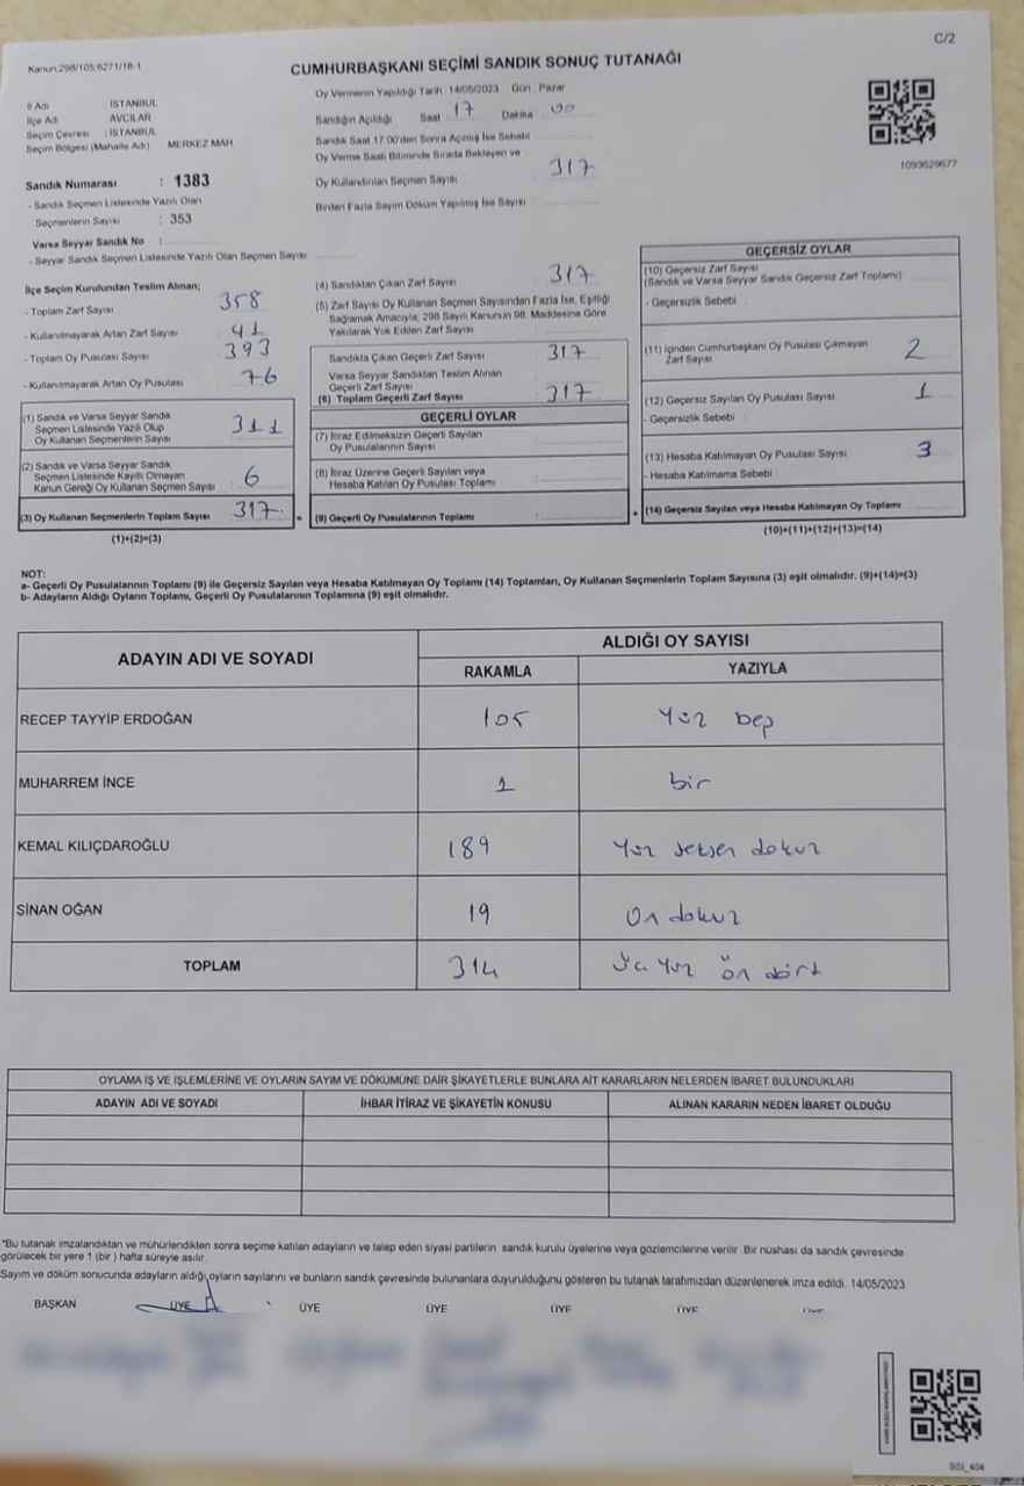 C/2
Kanun:298/105;6271/18-1
CUMHURBAŞKANI SEÇİMİ SANDIK SONUÇ TUTANAĞI
İl Adı : İSTANBUL
İlçe Adı : AVCILAR
Seçim Çevresi : İSTANBUL
Seçim Bölgesi (Mahalle Adı) : MERKEZ MAH.
Sandık Numarası : 1383
- Sandık Seçmen Listesinde Yazılı Olan
Seçmenlerin Sayısı : 353
Varsa Seyyar Sandık No :
- Seyyar Sandık Seçmen Listesinde Yazılı Olan Seçmen Sayısı
Oy Vermenin Yapıldığı Tarih: 14/05/2023 Gün: Pazar
Sandığın Açıldığı Saat 17 Dakika 00
Sandık Saat 17.00'den Sonra Açılmış İse Sebebi
Oy Verme Saati Bitiminde Sırada Bekleyen ve
Oy Kullandırılan Seçmen Sayısı 317
Birden Fazla Sayım Döküm Yapılmış İse Sayısı
1093629677
İlçe Seçim Kurulundan Teslim Alınan;
- Toplam Zarf Sayısı 358
- Kullanılmayarak Artan Zarf Sayısı 41
- Toplam Oy Pusulası Sayısı 393
- Kullanılmayarak Artan Oy Pusulası 76
(1) Sandık ve Varsa Seyyar Sandık
Seçmen Listesinde Yazılı Olup
Oy Kullanan Seçmenlerin Sayısı 311
(2) Sandık ve Varsa Seyyar Sandık
Seçmen Listesinde Kayıtlı Olmayan
Kanun Gereği Oy Kullanan Seçmen Sayısı 6
(3) Oy Kullanan Seçmenlerin Toplam Sayısı 317
(1)+(2)=(3)
(4) Sandıktan Çıkan Zarf Sayısı 317
(5) Zarf Sayısı Oy Kullanan Seçmen Sayısından Fazla İse, Eşitliği
Sağlamak Amacıyla, 298 Sayılı Kanunun 98. Maddesine Göre
Yakılarak Yok Edilen Zarf Sayısı
Sandıkta Çıkan Geçerli Zarf Sayısı 317
Varsa Seyyar Sandıktan Teslim Alınan
Geçerli Zarf Sayısı
(6) Toplam Geçerli Zarf Sayısı 317
GEÇERLİ OYLAR
(7) İtiraz Edilmeksizin Geçerli Sayılan
Oy Pusulalarının Sayısı
(8) İtiraz Üzerine Geçerli Sayılan veya
Hesaba Katılan Oy Pusulası Toplamı
= (9) Geçerli Oy Pusulalarının Toplamı :
GEÇERSİZ OYLAR
(10) Geçersiz Zarf Sayısı
(Sandık ve Varsa Seyyar Sandık Geçersiz Zarf Toplamı)
- Geçersizlik Sebebi
(11) İçinden Cumhurbaşkanı Oy Pusulası Çıkmayan
Zarf Sayısı 2
(12) Geçersiz Sayılan Oy Pusulası Sayısı 1
- Geçersizlik Sebebi
(13) Hesaba Katılmayan Oy Pusulası Sayısı 3
- Hesaba Katılmama Sebebi
+ (14) Geçersiz Sayılan veya Hesaba Katılmayan Oy Toplamı
(10)+(11)+(12)+(13)=(14)
NOT:
a- Geçerli Oy Pusulalarının Toplamı (9) ile Geçersiz Sayılan veya Hesaba Katılmayan Oy Toplamı (14) Toplamları, Oy Kullanan Seçmenlerin Toplam Sayısına (3) eşit olmalıdır. (9)+(14)=(3)
b- Adayların Aldığı Oyların Toplamı, Geçerli Oy Pusulalarının Toplamına (9) eşit olmalıdır.
ADAYIN ADI VE SOYADI ALDIĞI OY SAYISI
RAKAMLA YAZIYLA
RECEP TAYYİP ERDOĞAN 105 Yüz beş
MUHARREM İNCE 1 bir
KEMAL KILIÇDAROĞLU 189 Yüz seksen dokuz
SİNAN OĞAN 19 On dokuz
TOPLAM 314 Üç Yüz ön dört
OYLAMA İŞ VE İŞLEMLERİNE VE OYLARIN SAYIM VE DÖKÜMÜNE DAİR ŞİKAYETLERLE BUNLARA AİT KARARLARIN NELERDEN İBARET BULUNDUKLARI
ADAYIN ADI VE SOYADI İHBAR İTİRAZ VE ŞİKAYETİN KONUSU ALINAN KARARIN NEDEN İBARET OLDUĞU
*Bu tutanak imzalandıktan ve mühürlendikten sonra seçime katılan adayların ve talep eden siyasi partilerin sandık kurulu üyelerine veya gözlemcilerine verilir. Bir nüshası da sandık çevresinde
görülecek bir yere 1 (bir ) hafta süreyle asılır.
Sayım ve döküm sonucunda adayların aldığı oyların sayılarını ve bunların sandık çevresinde bulunanlara duyurulduğunu gösteren bu tutanak tarafımızdan düzenlenerek imza edildi. 14/05/2023
BAŞKAN ÜYE ÜYE ÜYE ÜYE ÜYE ÜYE